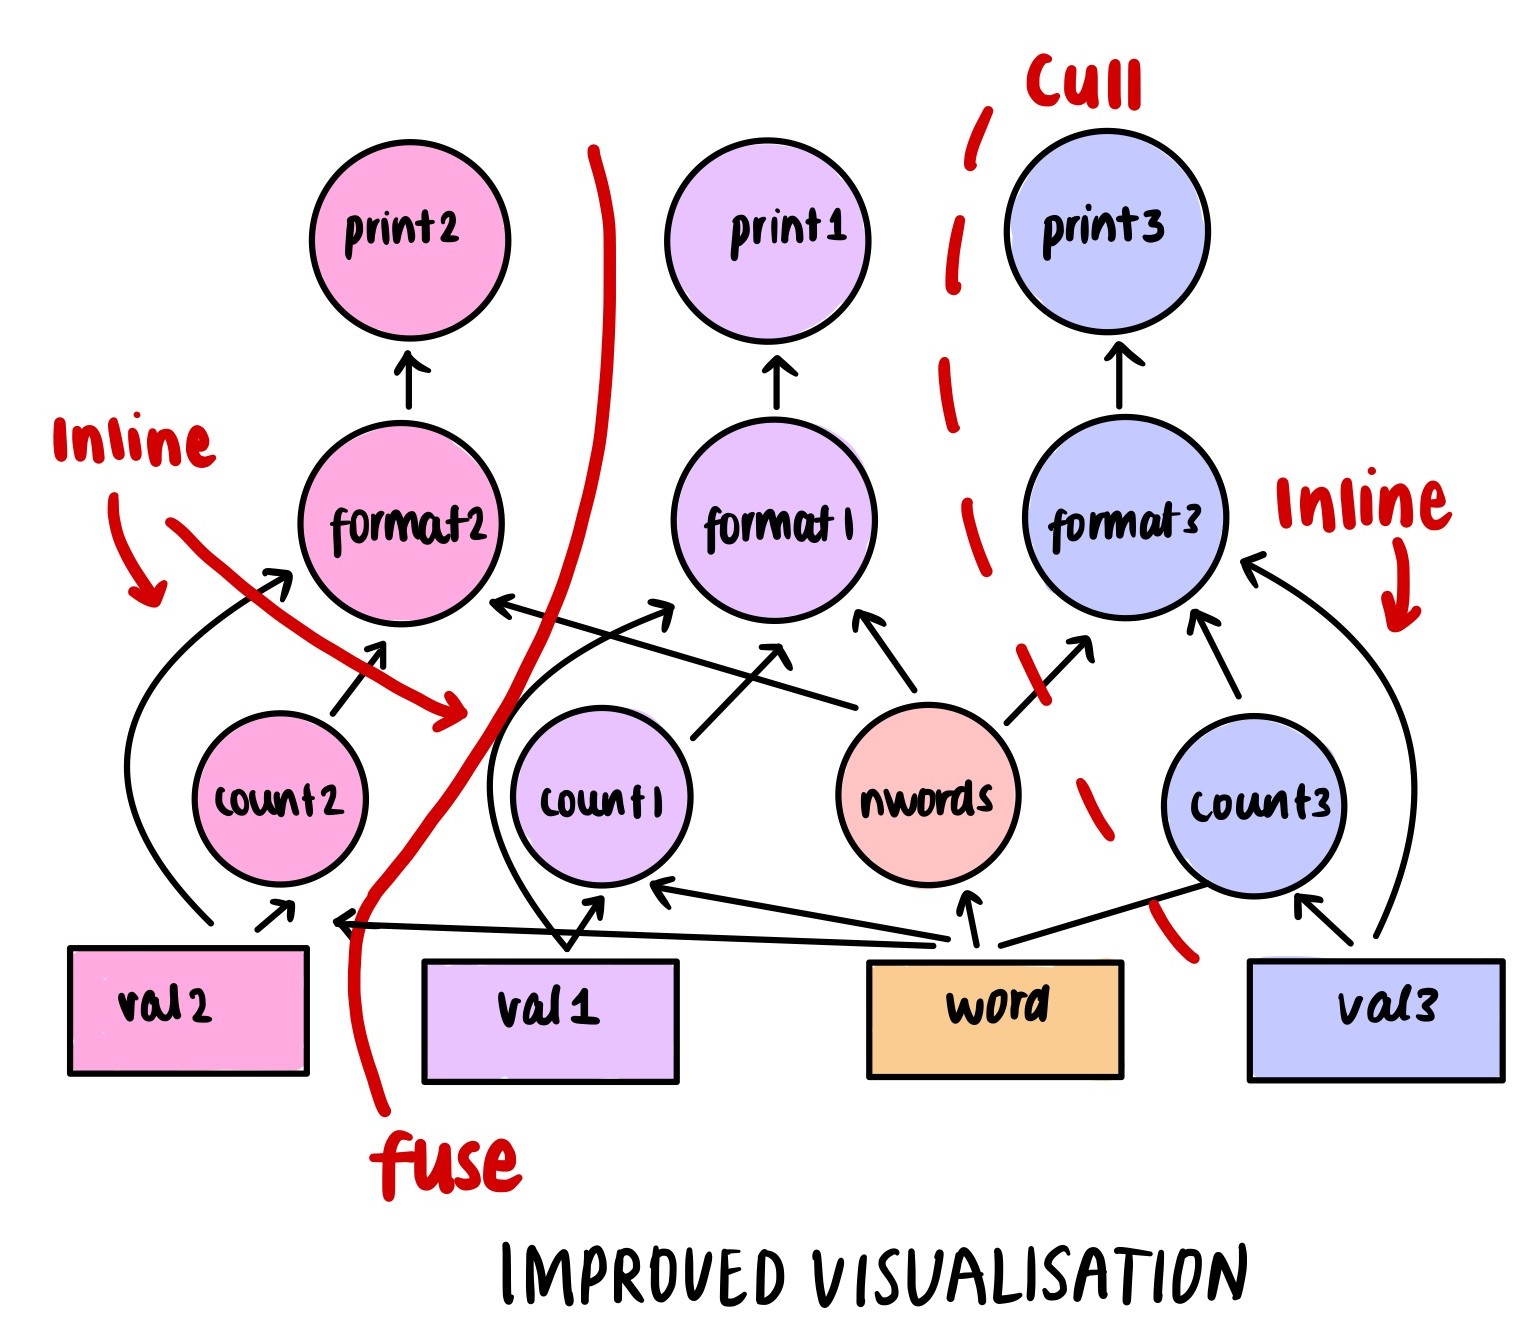 Cull
print2
print1
print3
Inline
format2
format1
format3
Inline
count2
count1
nwords
count3
val2
val1
word
val3
fuse
IMPROVED VISUALISATION